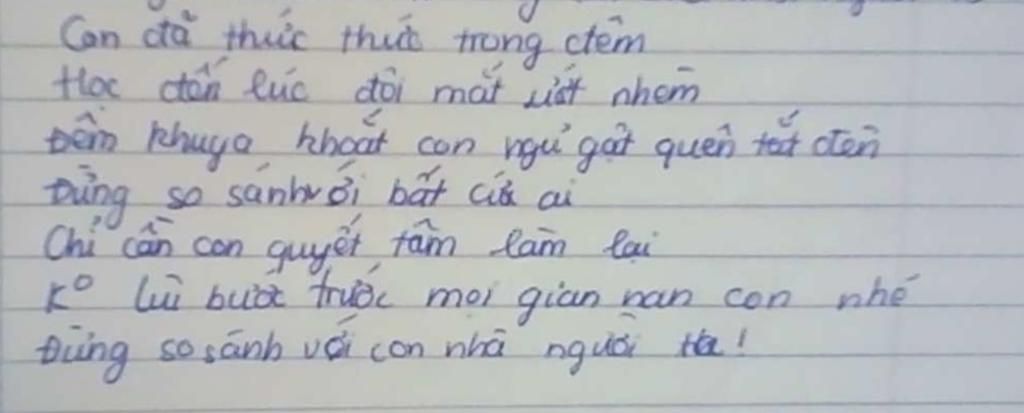 Con đã thức thức trong đêm
Học đến lúc đôi mắt ướt nhem
Đêm khuya khoắt con ngủ gật quên tắt đèn
Đừng so sánh với bất cứ ai
Chỉ cần con quyết tâm làm lại
K° lùi bước trước mọi gian nan con nhé
Đừng so sánh với con nhà người ta!